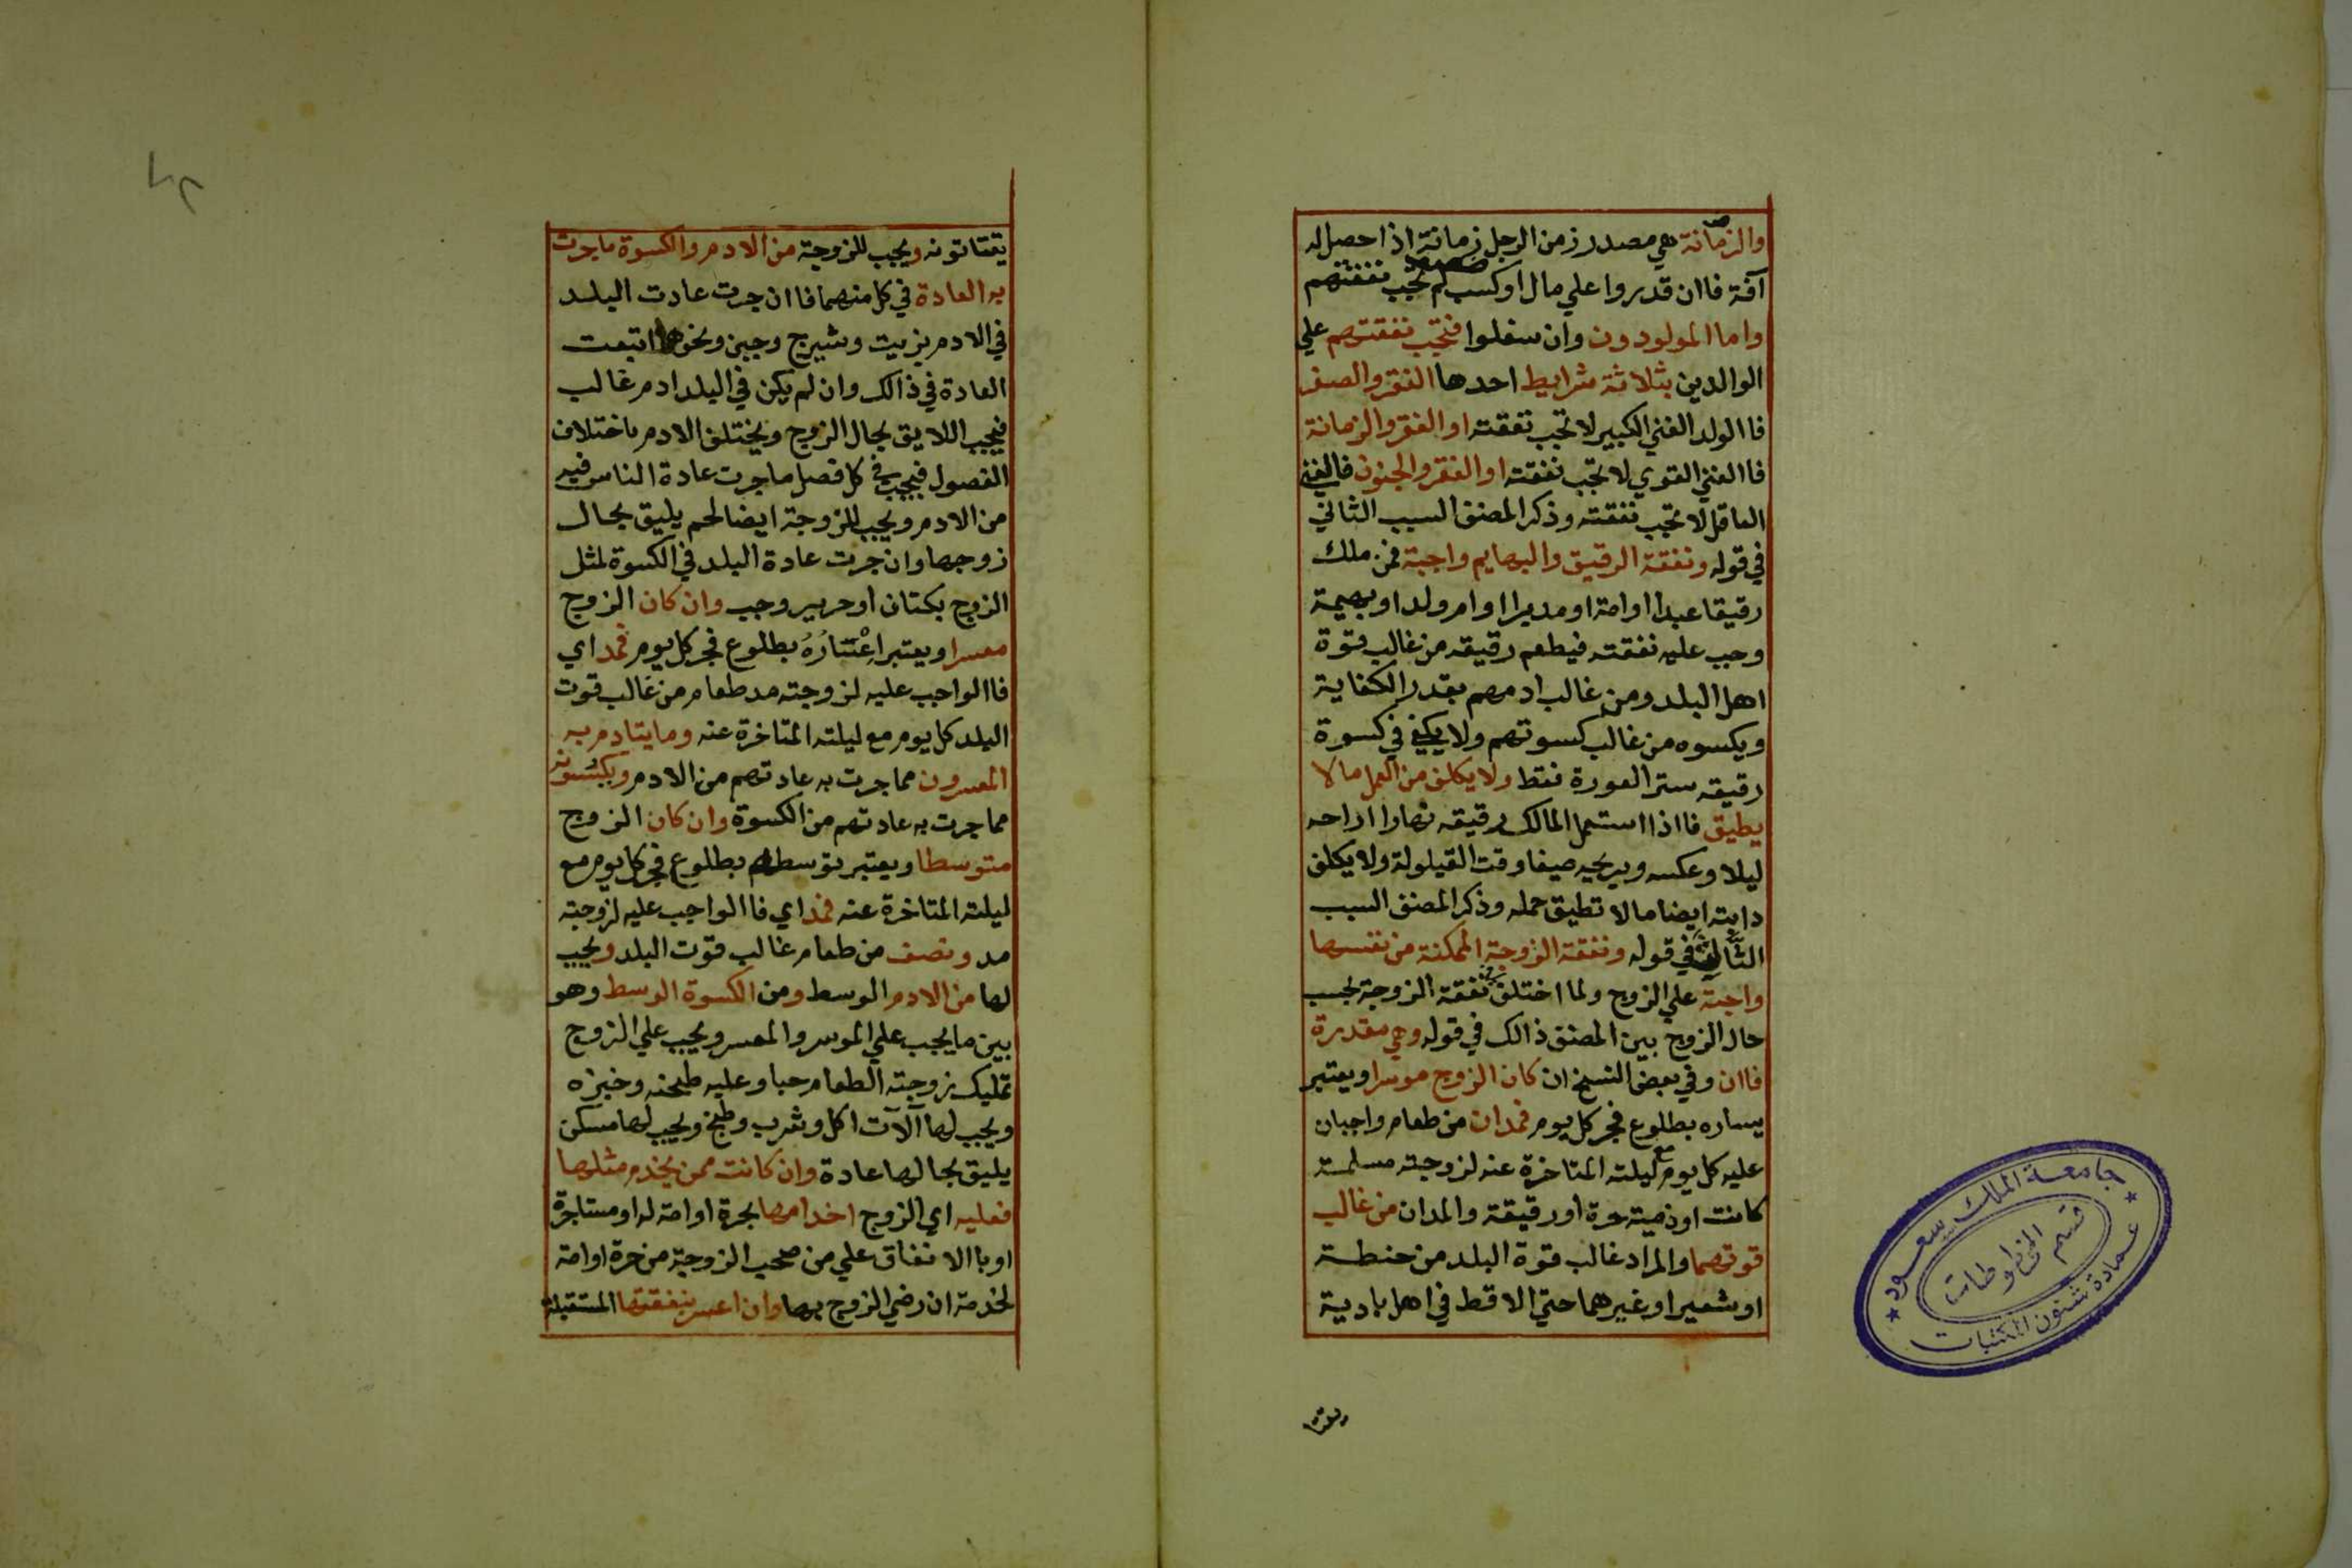 والزمانة هي مصدر زمن الرجل زمانة اذا حصل له
آفة فاان قدروا علي مال او كسب لم تجب نفقتهم
واما المولودون وان سفلوا فتجب نفقتهم علي
الوالدين بثلاثة شرايط احدها الفقر والصغر
فاالولد الغني الكبير لا تجب نفقته او الفقر والزمانة
فاالغني القوي لا تجب نفقته او الفقر والجنون فالغني
العاقل لا تجب نفقته وذكر المصنف السبب الثاني
في قوله ونفقة الرقيق والبهايم واجبة فمن ملك
رقيقا عبدا او امة او مدبرا او ام ولد او بهيمة
وجب عليه نفقته فيطعم رقيقه من غالب قوة
اهل البلد ومن غالب ادمهم بقدر الكفاية
ويكسوه من غالب كسوتهم ولا يكفي في كسوة
رقيقه ستر العورة فقط ولا يكلف من العمل ما لا
يطيق فااذا استعمل المالك رقيقه نهارا اراحه
ليلا وعكسه ويريحه صيفا وقت القيلولة ولا يكلف
دابته ايضا ما لا تطيق حمله وذكر المصنف السبب
الثالث في قوله ونفقة الزوجة الممكنة من نفسها
واجبة علي الزوج ولما اختلفت نفقة الزوجة بحسب
حال الزوج بين المصنف ذالك في قوله وهي مقدرة
فاان وفي بعض النسخ ان كان الزوج موسرا ويعتبر
يساره بطلوع فجر كل يوم فمدان من طعام واجبان
عليه كل يوم مع ليلته المتاخرة عنه لزوجته مسلمة
كانت او ذمية حرة او رقيقة والمدان من غالب
قوتهما والمراد غالب قوة البلد من حنطة
او شعير او غيرهما حتي الاقط في اهل بادية
يقتاتونه ويجب للزوجة من الادم والكسوة ما جرت
به العادة في كل منهما فاان جرت عادت البلد
في الادم بزيت وشيرج وجبن ونحوها اتبعت
العادة في ذالك وان لم يكن في البلد ادم غالب
فيجب اللايق بحال الزوج ويختلف الادم باختلاف
الفصول فيجب في كل فصل ما جرت عادة الناس فيه
من الادم ويجب للزوجة ايضا لحم يليق بحال
زوجها وان جرت عادة البلد في الكسوة لمثل
الزوج بكتان او حرير وجب وان كان الزوج
معسرا ويعتبر اعْتسَارُهُ بطلوع فجر كل يوم فمد اي
فاالواجب عليه لزوجته مد طعام من غالب قوت
البلد كل يوم مع ليلته المتاخرة عنه وما يتادم به
المعسرون مما جرت به عادتهم من الادم ويكسونه
مما جرت به عادتهم من الكسوة وان كان الزوج
متوسطا ويعتبر توسطه بطلوع فجر كل يوم مع
ليلته المتاخرة عنه فمد اي فاالواجب عليه لزوجته
مد ونصف من طعام غالب قوت البلد ويجب
لها من الادم الوسط ومن الكسوة الوسط وهو
بين ما يجب علي الموسر والمعسر ويجب علي الزوج
تمليك زوجته الطعام حبا وعليه طحنه وخبزه
ويجب لها آلآت اكل وشرب وطبخ ويجب لها مسكن
يليق بحالها عادة وان كانت ممن يخدم مثلها
فعليه اي الزوج اخدامها بحرة او امة له او مستاجرة
او باالانفاق علي من صحب الزوجة من حرة او امة
لخدمة ان رضي الزوج بها وان اعسر بنفقتها المستقبلة
جامعة الملك سعود
قسم المخطوطات
عمادة شئون المكتبات